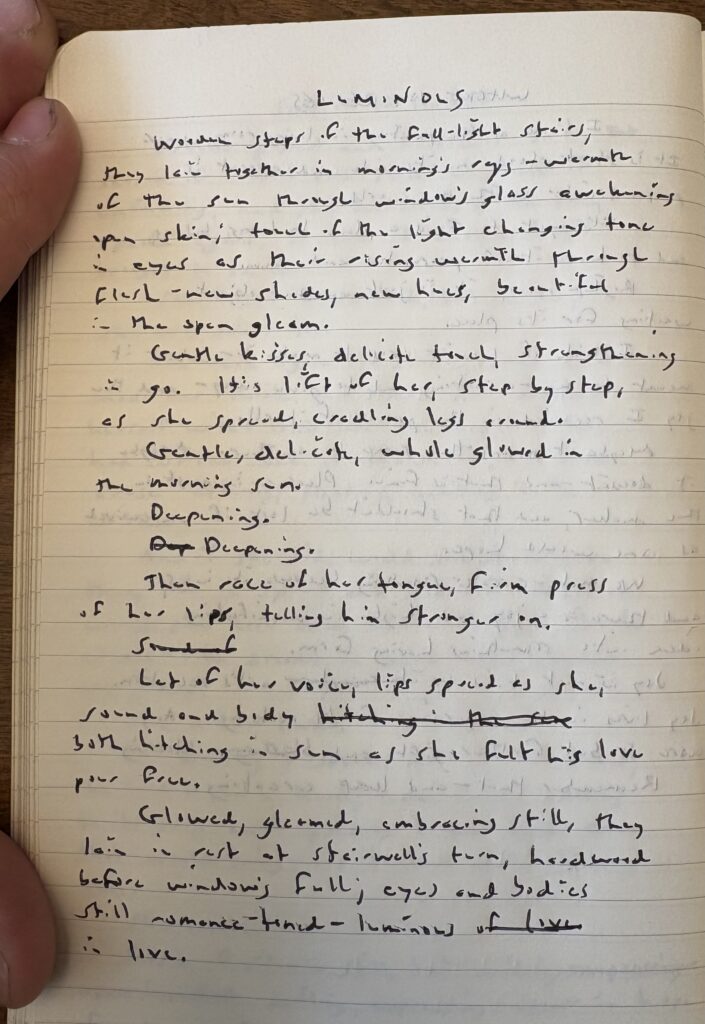 LUMINOUS
Wooden steps of the full-light stairs,
they lain together in morning's rays - warmth
of the sun through window's glass awakening
open skin; touch of the light changing tone
in eyes as their rising warmth through
flesh - new shades, new hues, beautiful
in the open gleam.
Gentle kisses, delicate touch, strengthening
in go. It's lift of her, step by step,
as she spread, cradling legs around.
Gentle, delicate, whole glowed in
the morning sun.
Deepening.
Dep Deepening.
Then race of her tongue, firm press
of her lips, telling him stronger on.
Sound of
Let of her voice, lips spread as she,
sound and body hitching in the sun
both hitching in sum as she felt his love
pour free.
Glowed, gleamed, embracing still, they
lain in rest at stairwell's turn, hardwood
before window's full; eyes and bodies
still romance-toned - luminous of love
in love.